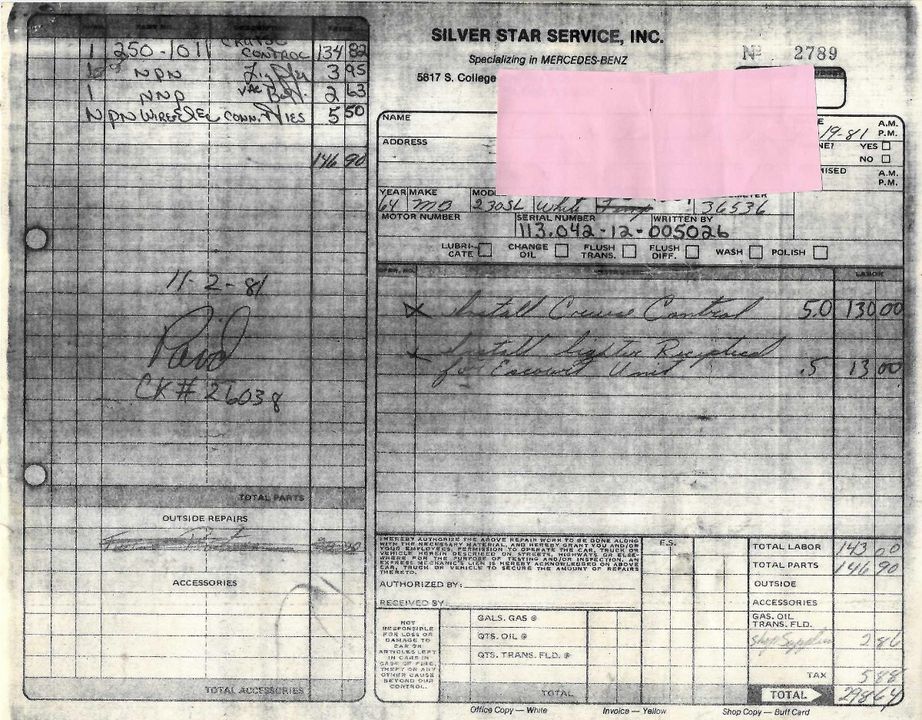 1 250-1011 CRUISE CONTROL 134 82
NPN 3 95
1 NNP VAC 2 63
NPN CONN. TIES 5 50
146 90
11-2-81
Paid
CK# 26038
TOTAL PARTS
OUTSIDE REPAIRS
ACCESSORIES
TOTAL ACCESSORIES
SILVER STAR SERVICE, INC.
Specializing in MERCEDES-BENZ
5817 S. College
Nº 2789
NAME
A.M.
19-81 P.M.
ADDRESS
NE? YES
NO
MISED A.M.
P.M.
YEAR MAKE
64 MB 230SL White 36536
MOTOR NUMBER SERIAL NUMBER WRITTEN BY
113.042-12-005026
LUBRI-CATE CHANGE OIL FLUSH TRANS. FLUSH DIFF. WASH POLISH
LABOR
Install Cruise Control 5.0 130 00
Install Lighter
for Escort Unit .5 13 00
I HEREBY AUTHORIZE THE ABOVE REPAIR WORK TO BE DONE ALONG
WITH THE NECESSARY MATERIAL, AND HEREBY GRANT YOU AND/OR
YOUR EMPLOYEES, PERMISSION TO OPERATE THE CAR, TRUCK OR
VEHICLE HEREIN DESCRIBED ON STREETS, HIGHWAYS OR ELSE-
WHERE FOR THE PURPOSE OF TESTING AND/OR INSPECTION. AN
EXPRESS MECHANIC'S LIEN IS HEREBY ACKNOWLEDGED ON ABOVE
CAR, TRUCK OR VEHICLE TO SECURE THE AMOUNT OF REPAIRS
THERETO.
F.S.
AUTHORIZED BY:
RECEIVED BY
NOT
RESPONSIBLE
FOR LOSS OR
DAMAGE TO
CAR OR
ARTICLES LEFT
IN CARS IN
CASE OF FIRE,
THEFT OR ANY
OTHER CAUSE
BEYOND OUR
CONTROL.
GALS. GAS @
QTS. OIL @
QTS. TRANS. FLD. @
TOTAL
TOTAL LABOR 143 00
TOTAL PARTS 146 90
OUTSIDE
ACCESSORIES
GAS. OIL
TRANS. FLD.
Shop Supplies 2 86
TAX 5 88
TOTAL 298 64
Office Copy — White Invoice — Yellow Shop Copy — Buff Card